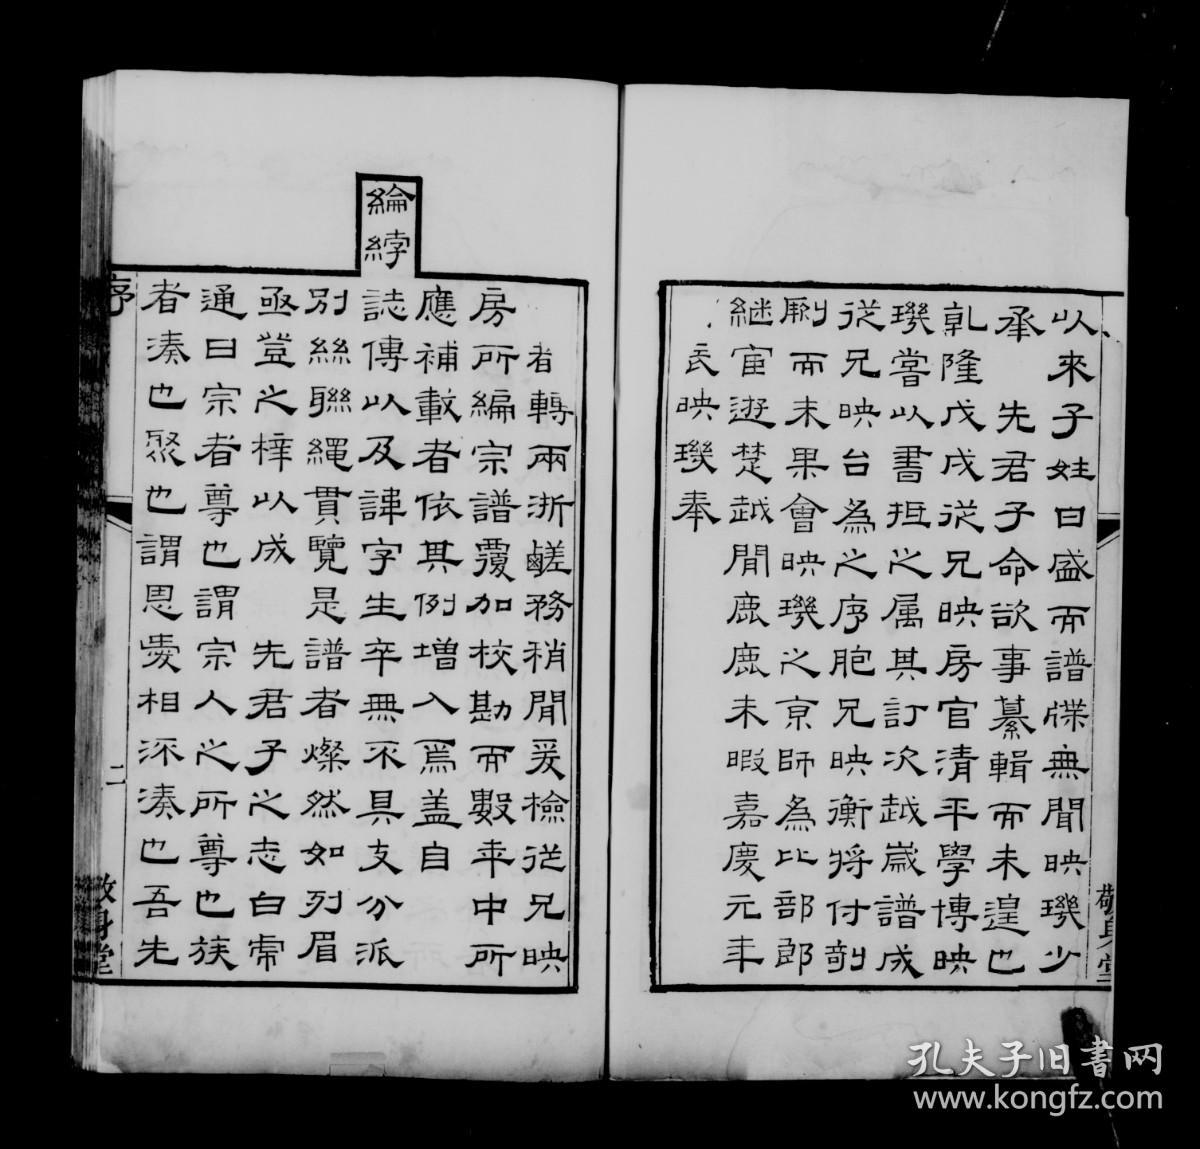 以來子姓日盛而譜牒無聞映璣少
承 先君子命欲事纂輯而未遑也
乾隆戊戌從兄映房官清平學博映
璣嘗以書抵之属其訂次越歲譜成
從兄映台為之序胞兄映衡将付剞
劂而未果會映璣之京師為比部郎
継宦遊楚越間鹿鹿未暇嘉慶元年
映璣奉
敬身堂
者轉兩浙鹺務稍閒爰檢從兄映
房所編宗譜覆加校勘而數年中所
應補載者依其例增入焉盖自
綸綍誌傳以及諱字生卒無不具支分派
别絲聯繩貫覽是譜者燦然如列眉
亟登之梓以成 先君子之志白虎
通曰宗者尊也謂宗人之所尊也族
者湊也聚也謂恩愛相流湊也吾先
序 二 敬身堂
孔夫子旧書网
www.kongfz.com